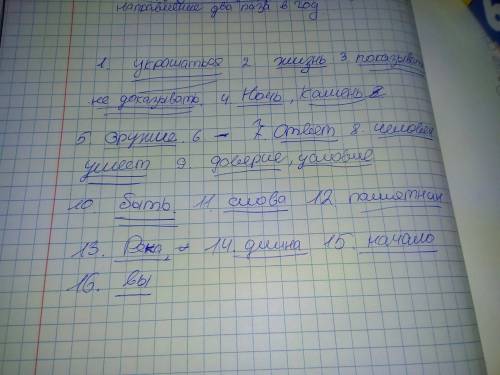 направление два раза в год
1. украшаться 2 жизнь 3 показыват
не доказывать, 4 Ночь, Камень
5 Оружие. 6 — 7 Ответ 8. человек
умеет 9. доверие, условие
10 быть. 11. слова 12 памятник
13. Река, 14. длина 15. начало
16. вы